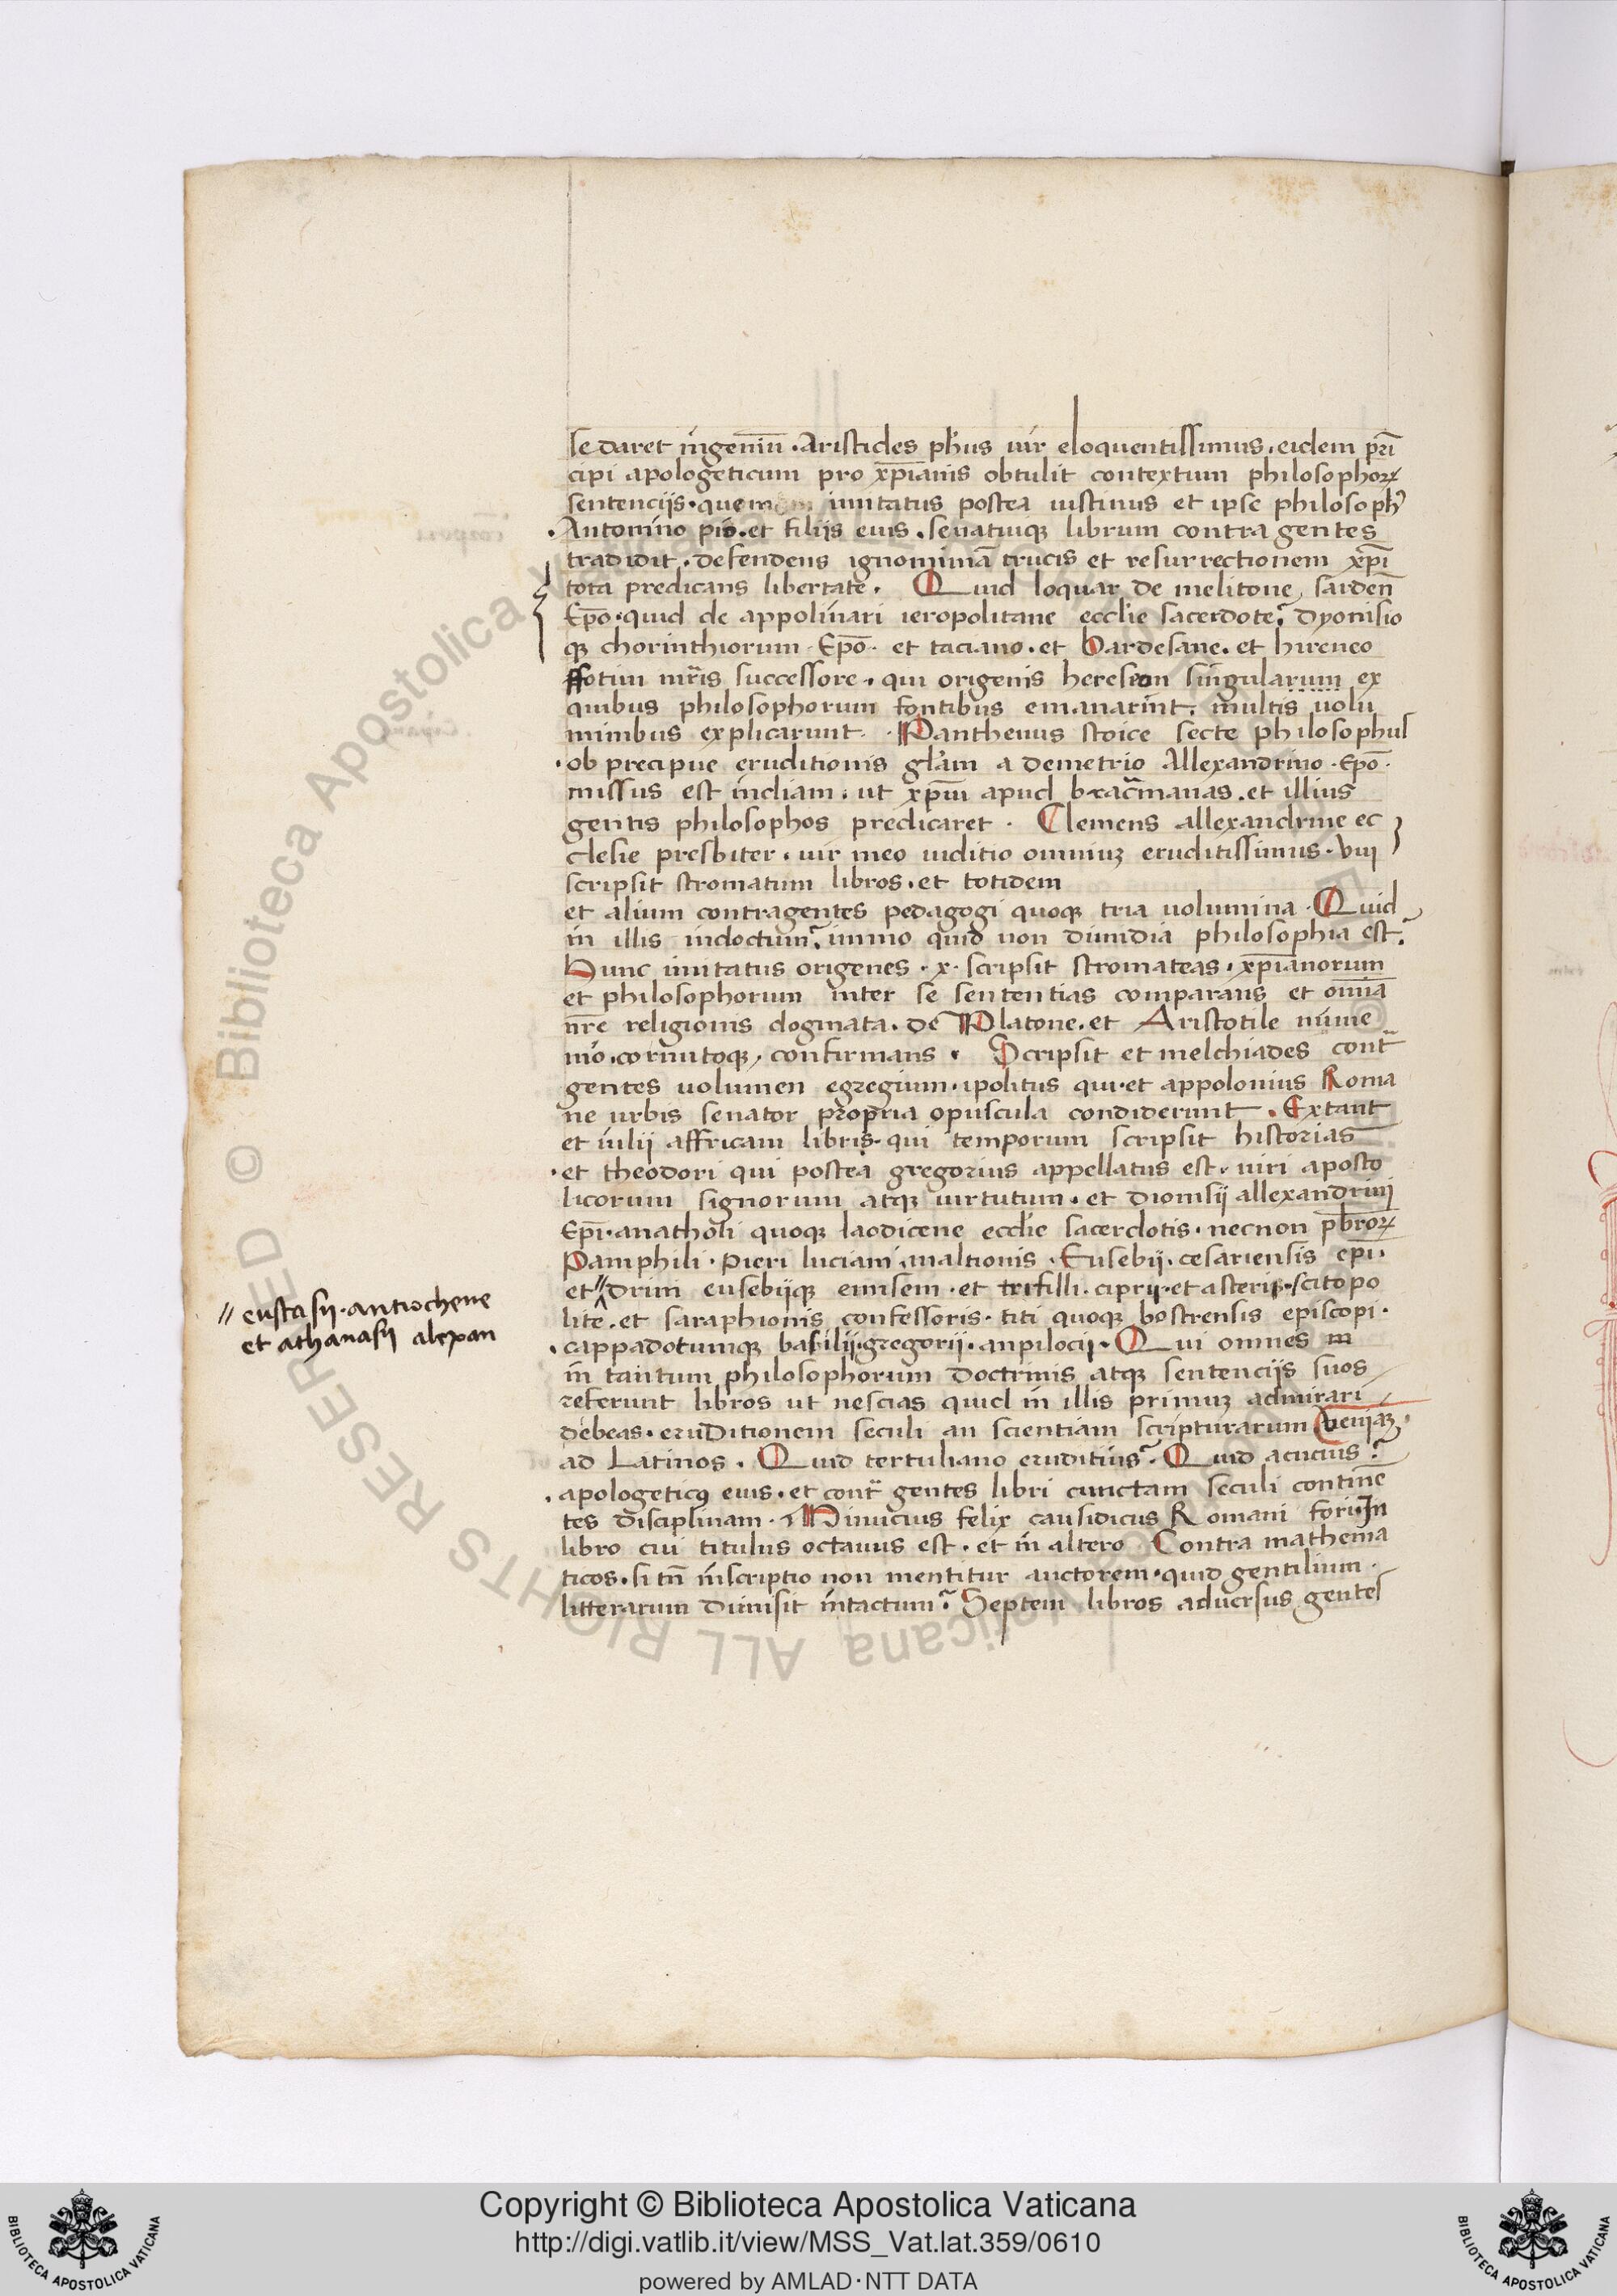 se daret ingeniū · Aristides ph̄us uir eloquentissimus · eidem pri̅
cipi apologeticum pro xp̅ianis obtulit contextum philosophoꝝ
sentencijs · quem imitatus postea iustinus et ip̅se philosoph9
· Antonino pio · et filijs euis · senatuiqꝫ librum contra gentes
tradidit · defendens ignominiā crucis et resurrectionem xp̅i
tota predicans libertate · Quid loquar de melitone sarden̅
Ep̅o · quid de appolinari ieropolitane ecclie̅ sacerdote? dyonisio
qꝫ chorinthiorum · Ep̅o · et taciano · et Bardesane · et hireneo
ffotini mr̅is successore · qui origenis hereseon singularum ex
quibus philosophorum fontibus emanarint · multis uolu
minibus explicarunt · Panthenus stoice secte philosophus
· ob precipue eruditionis gl̅am a demetrio Allexandrino · Ep̅o ·
missus est indiam · ut xp̅m apud bracmanas · et illius
gentis philosophos predicaret · Clemens allexandrine ec
clesie presbiter · uir meo iuditio omniuꝫ eruditissimus · viii
scripsit stromatum libros · et totidem
et alium contragentes pedagogi quoqꝫ tria uolumina · Quid
in illis indoctum? immo quid non dimidia philosophia est?
Hunc imitatus origenes · x · scripsit stromateas · xp̅ianorum
et philosophorum inter se sententias comparans et omn̅ia
nr̅e religionis dogmata · de Platone · et Aristotile nume
nio · cornutoqꝫ · confirmans · Scripsit et melchiades cont̅
gentes uolumen egregium · ipolitus qui · et appolonius Roma
ne urbis senator propria opuscula condiderunt · Extant
et iulij affricani libris · qui temporum scripsit historias
· et theodori qui postea gregorius appellatus est · uiri aposto
licorum signorum atqꝫ uirtutum · et dionisij allexandrini
Ep̅i · anatholi quoqꝫ laodicene eccl̅ie sacerdotis · necnon pb̅roꝝ
Pamphili · pieri luciani · maltionis · Eusebij · cesariensis ep̅i ·
et // drini eusebijqꝫ emisem · et trifilli · ciprij · et asterij · scitopo
lite · et saraphionis confessoris · titi quoqꝫ bostrensis episcopi ·
// eustasij · antiochene
et athanasij alexan
· cappadotumqꝫ basilij · gregorij · anpilocij · Qui omnes in
in tantum philosophorum doctrinis atqꝫ sentencijs suos
referunt libros ut nescias quid in illis primuꝫ admirari
debeas · eruditionem seculi an scientiam scripturarum veniaꝫ ·
ad Latinos · Quid tertuliano eruditius? Quid acucius?
· apologetic9 euis · et cont̅ gentes libri cunctam seculi contine̅
tes disciplinam · Minucius felix causidicus Romani fori · In
libro cui titulus octauus est · et in altero Contra mathema
ticos · si tn̅ inscriptio non mentitur auctorem · quid gentilium ·
litterarum dimisit intactum? Septem libros aduersus gentes
Copyright © Biblioteca Apostolica Vaticana
http://digi.vatlib.it/view/MSS_Vat.lat.359/0610
powered by AMLAD·NTT DATA